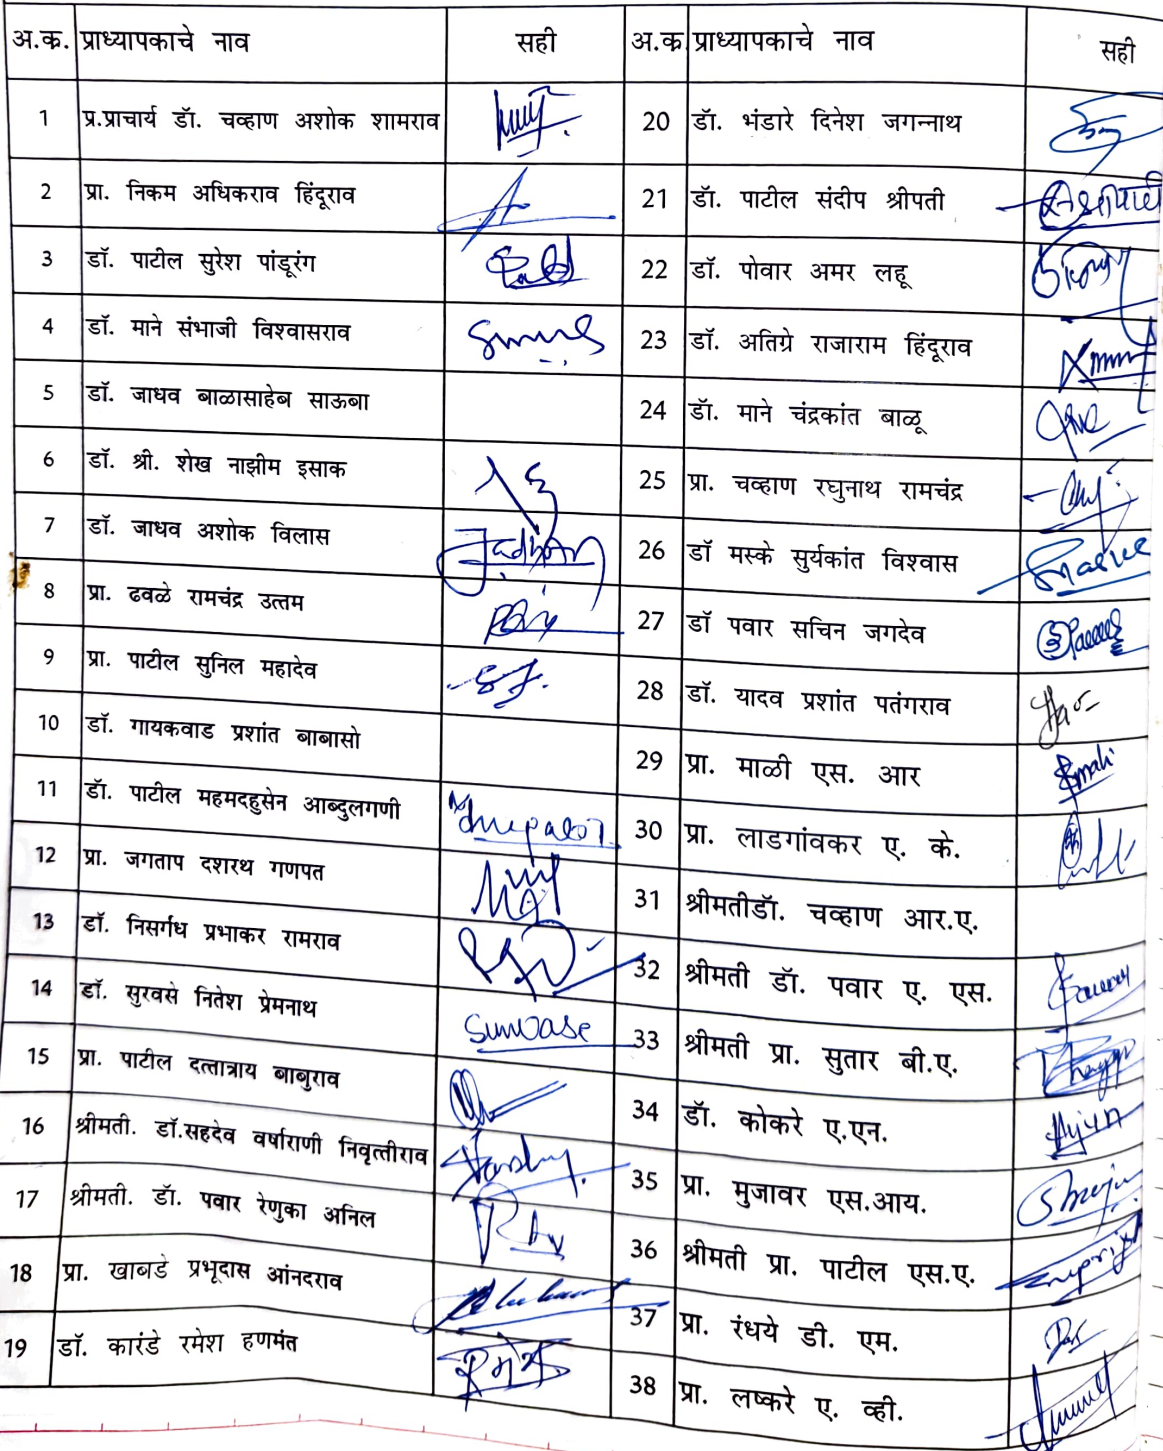 अ.क. प्राध्यापकाचे नाव सही अ.क. प्राध्यापकाचे नाव सही
1 प्र.प्राचार्य डॉ. चव्हाण अशोक शामराव 20 डॉ. भंडारे दिनेश जगन्नाथ
2 प्रा. निकम अधिकराव हिंदूराव 21 डॉ. पाटील संदीप श्रीपती
3 डॉ. पाटील सुरेश पांडूरंग 22 डॉ. पोवार अमर लहू
4 डॉ. माने संभाजी विश्वासराव 23 डॉ. अतिग्रे राजाराम हिंदूराव
5 डॉ. जाधव बाळासाहेब साऊबा 24 डॉ. माने चंद्रकांत बाळू
6 डॉ. श्री. शेख नाझीम इसाक 25 प्रा. चव्हाण रघुनाथ रामचंद्र
7 डॉ. जाधव अशोक विलास Jadhav 26 डॉ मस्के सुर्यकांत विश्वास
8 प्रा. ढवळे रामचंद्र उत्तम 27 डॉ पवार सचिन जगदेव
9 प्रा. पाटील सुनिल महादेव 28 डॉ. यादव प्रशांत पतंगराव
10 डॉ. गायकवाड प्रशांत बाबासो 29 प्रा. माळी एस. आर
11 डॉ. पाटील महमदहुसेन आब्दुलगणी 30 प्रा. लाडगांवकर ए. के.
12 प्रा. जगताप दशरथ गणपत 31 श्रीमतीडॉ. चव्हाण आर.ए.
13 डॉ. निसर्गंध प्रभाकर रामराव 32 श्रीमती डॉ. पवार ए. एस.
14 डॉ. सुरवसे नितेश प्रेमनाथ 33 श्रीमती प्रा. सुतार बी.ए.
15 प्रा. पाटील दत्तात्राय बाबुराव 34 डॉ. कोकरे ए.एन.
16 श्रीमती. डॉ.सहदेव वर्षाराणी निवृत्तीराव 35 प्रा. मुजावर एस.आय.
17 श्रीमती. डॉ. पवार रेणुका अनिल 36 श्रीमती प्रा. पाटील एस.ए.
18 प्रा. खाबडे प्रभूदास आंनदराव 37 प्रा. रंधये डी. एम.
19 डॉ. कारंडे रमेश हणमंत 38 प्रा. लष्करे ए. व्ही.